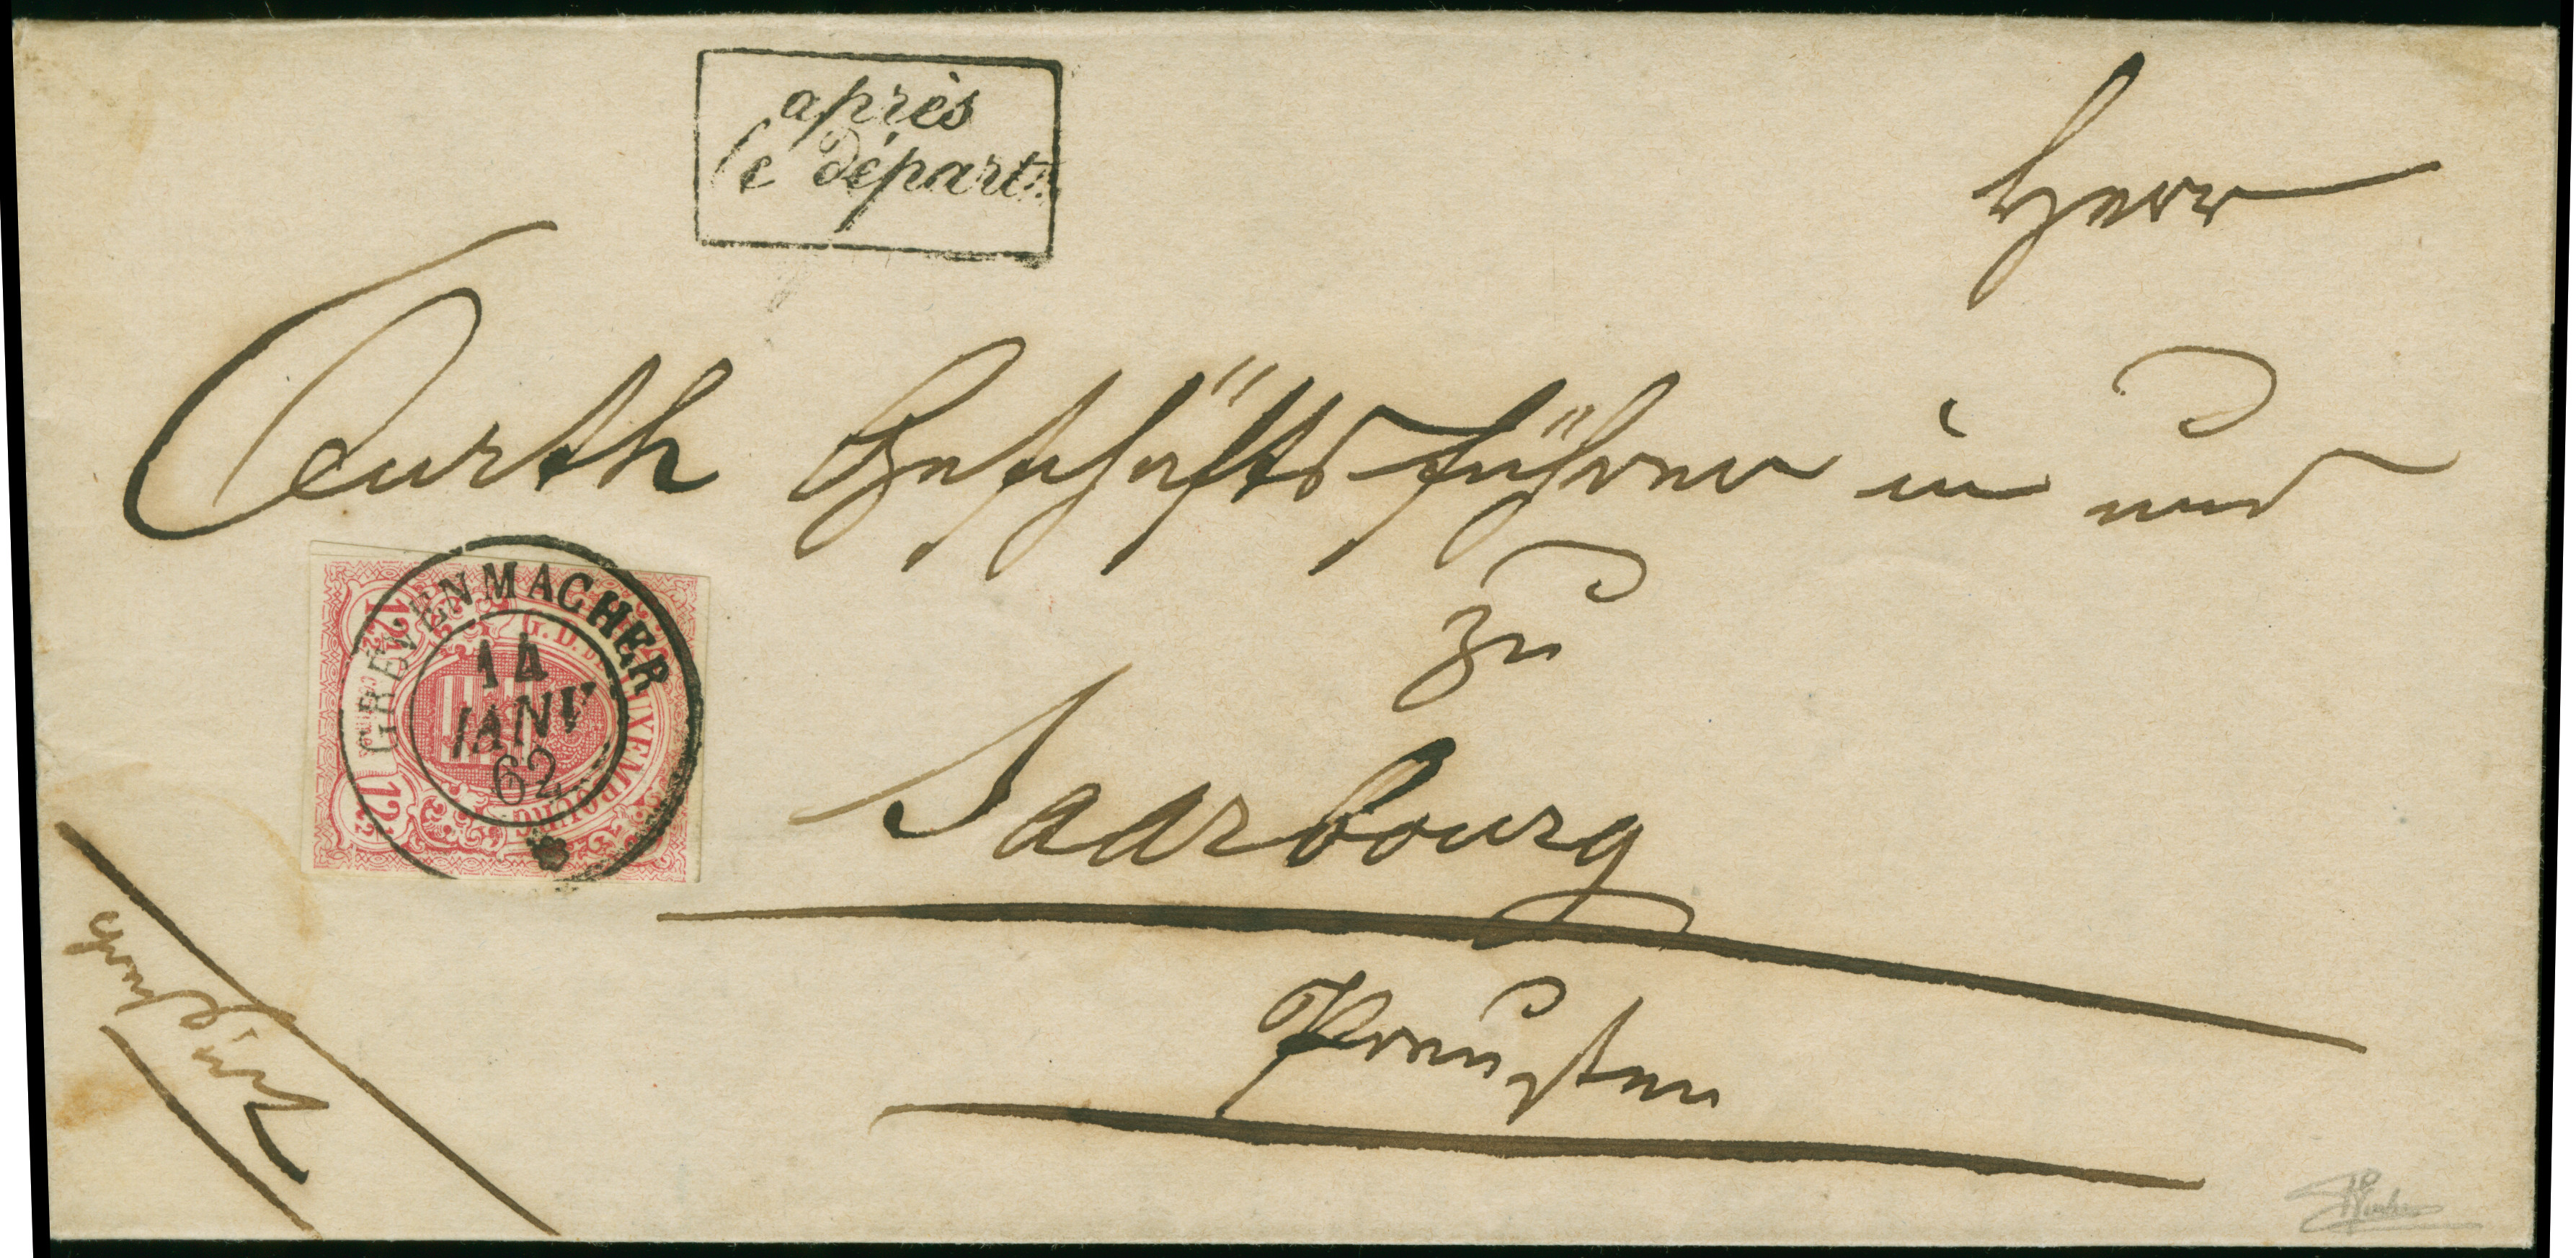 après
le départ.
Herr
Courth Geschäftsführer in und
zu
Saarbourg
Preußen
GREVENMACHER
14
JANV
62
G. D. DE LUXEMBOURG
12½
12½